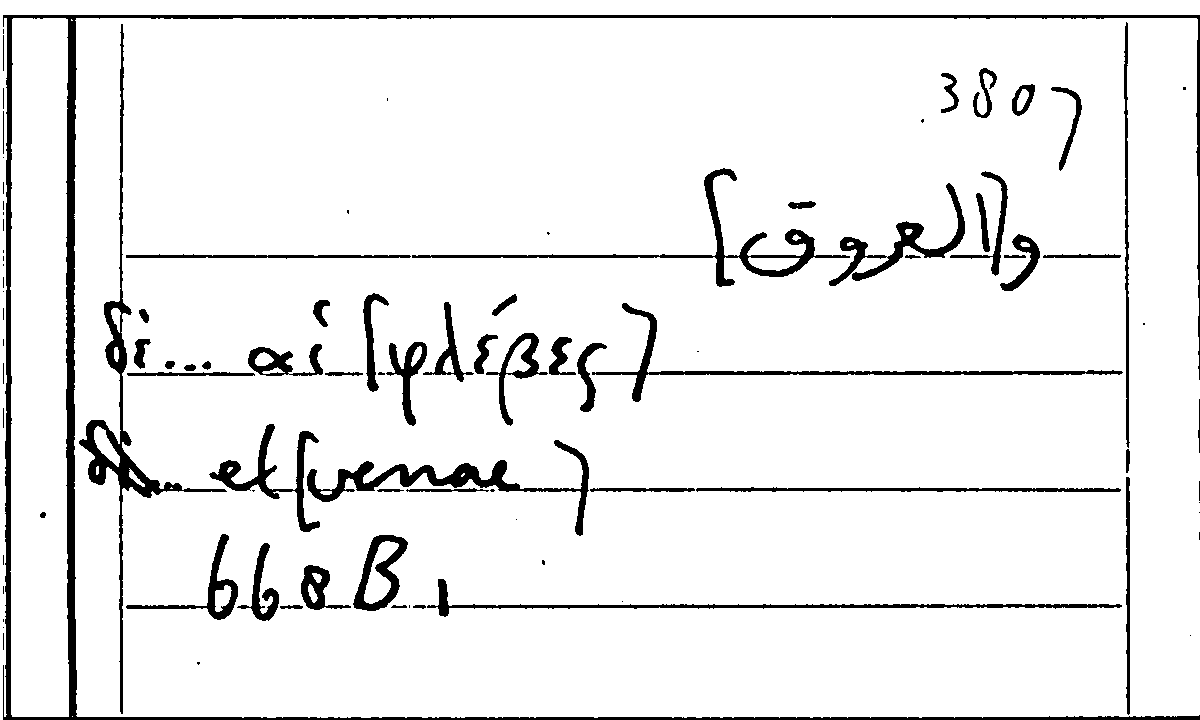 3807
وا[لعروق]
δὲ... αἱ [φλέβες]
... et [venae]
668 B 1